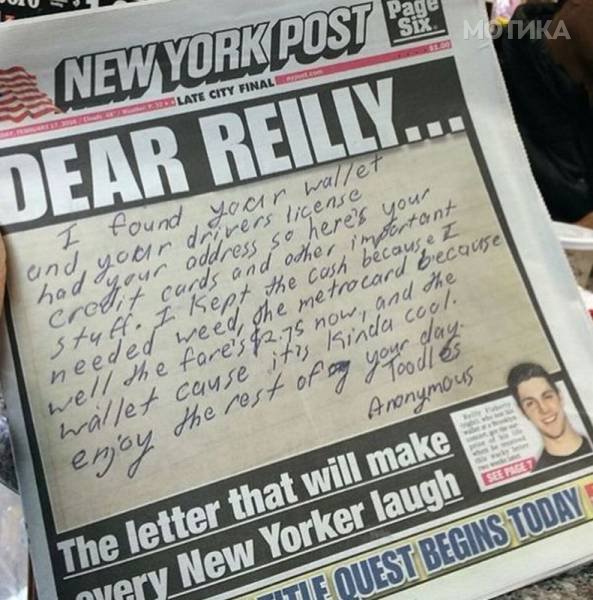 Page
Six.
МОТИКА
NEW YORK POST
$1.00
nypost.com
LATE CITY FINAL
DEAR REILLY...
I found your wallet
and your drivers license
had your address so here's your
credit cards and other important
stuff. I kept the cash because I
needed weed, the metrocard because
well the fare's $2.75 now, and the
wallet cause it's kinda cool.
enjoy the rest of your day.
Toodles
Anonymous
Reilly Flaherty
SEE PAGE 7
The letter that will make
every New Yorker laugh
TITLE QUEST BEGINS TODAY